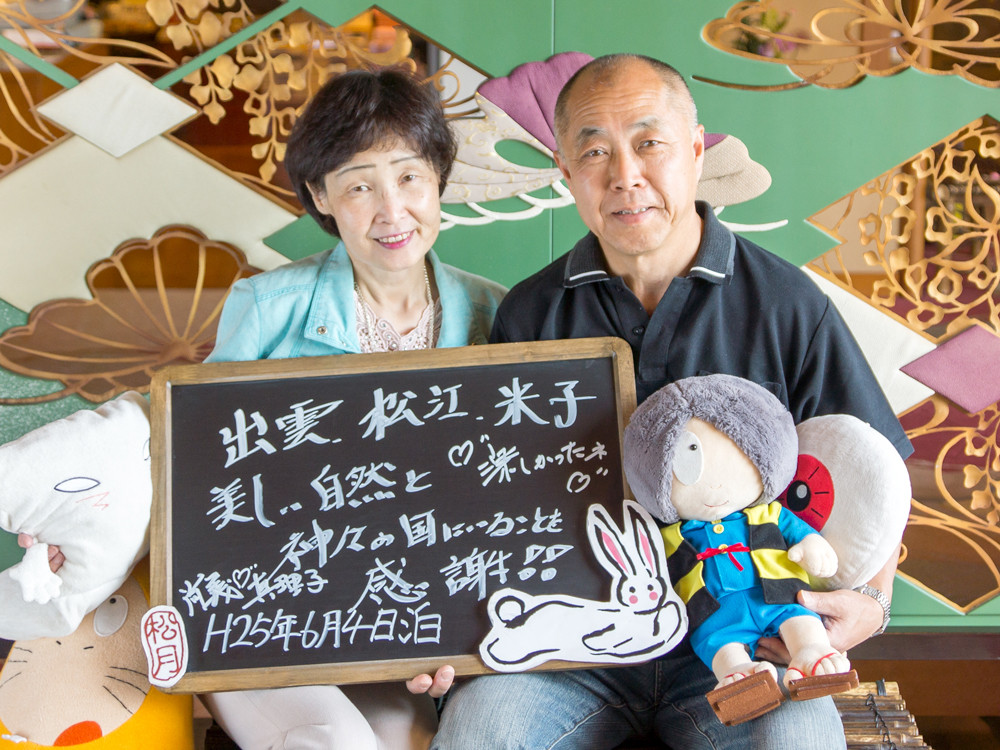 出雲、松江、米子
美しい自然と
楽しかったネ
神々の国にいることを
感謝!!
真理子
H25年6月4日泊
松月